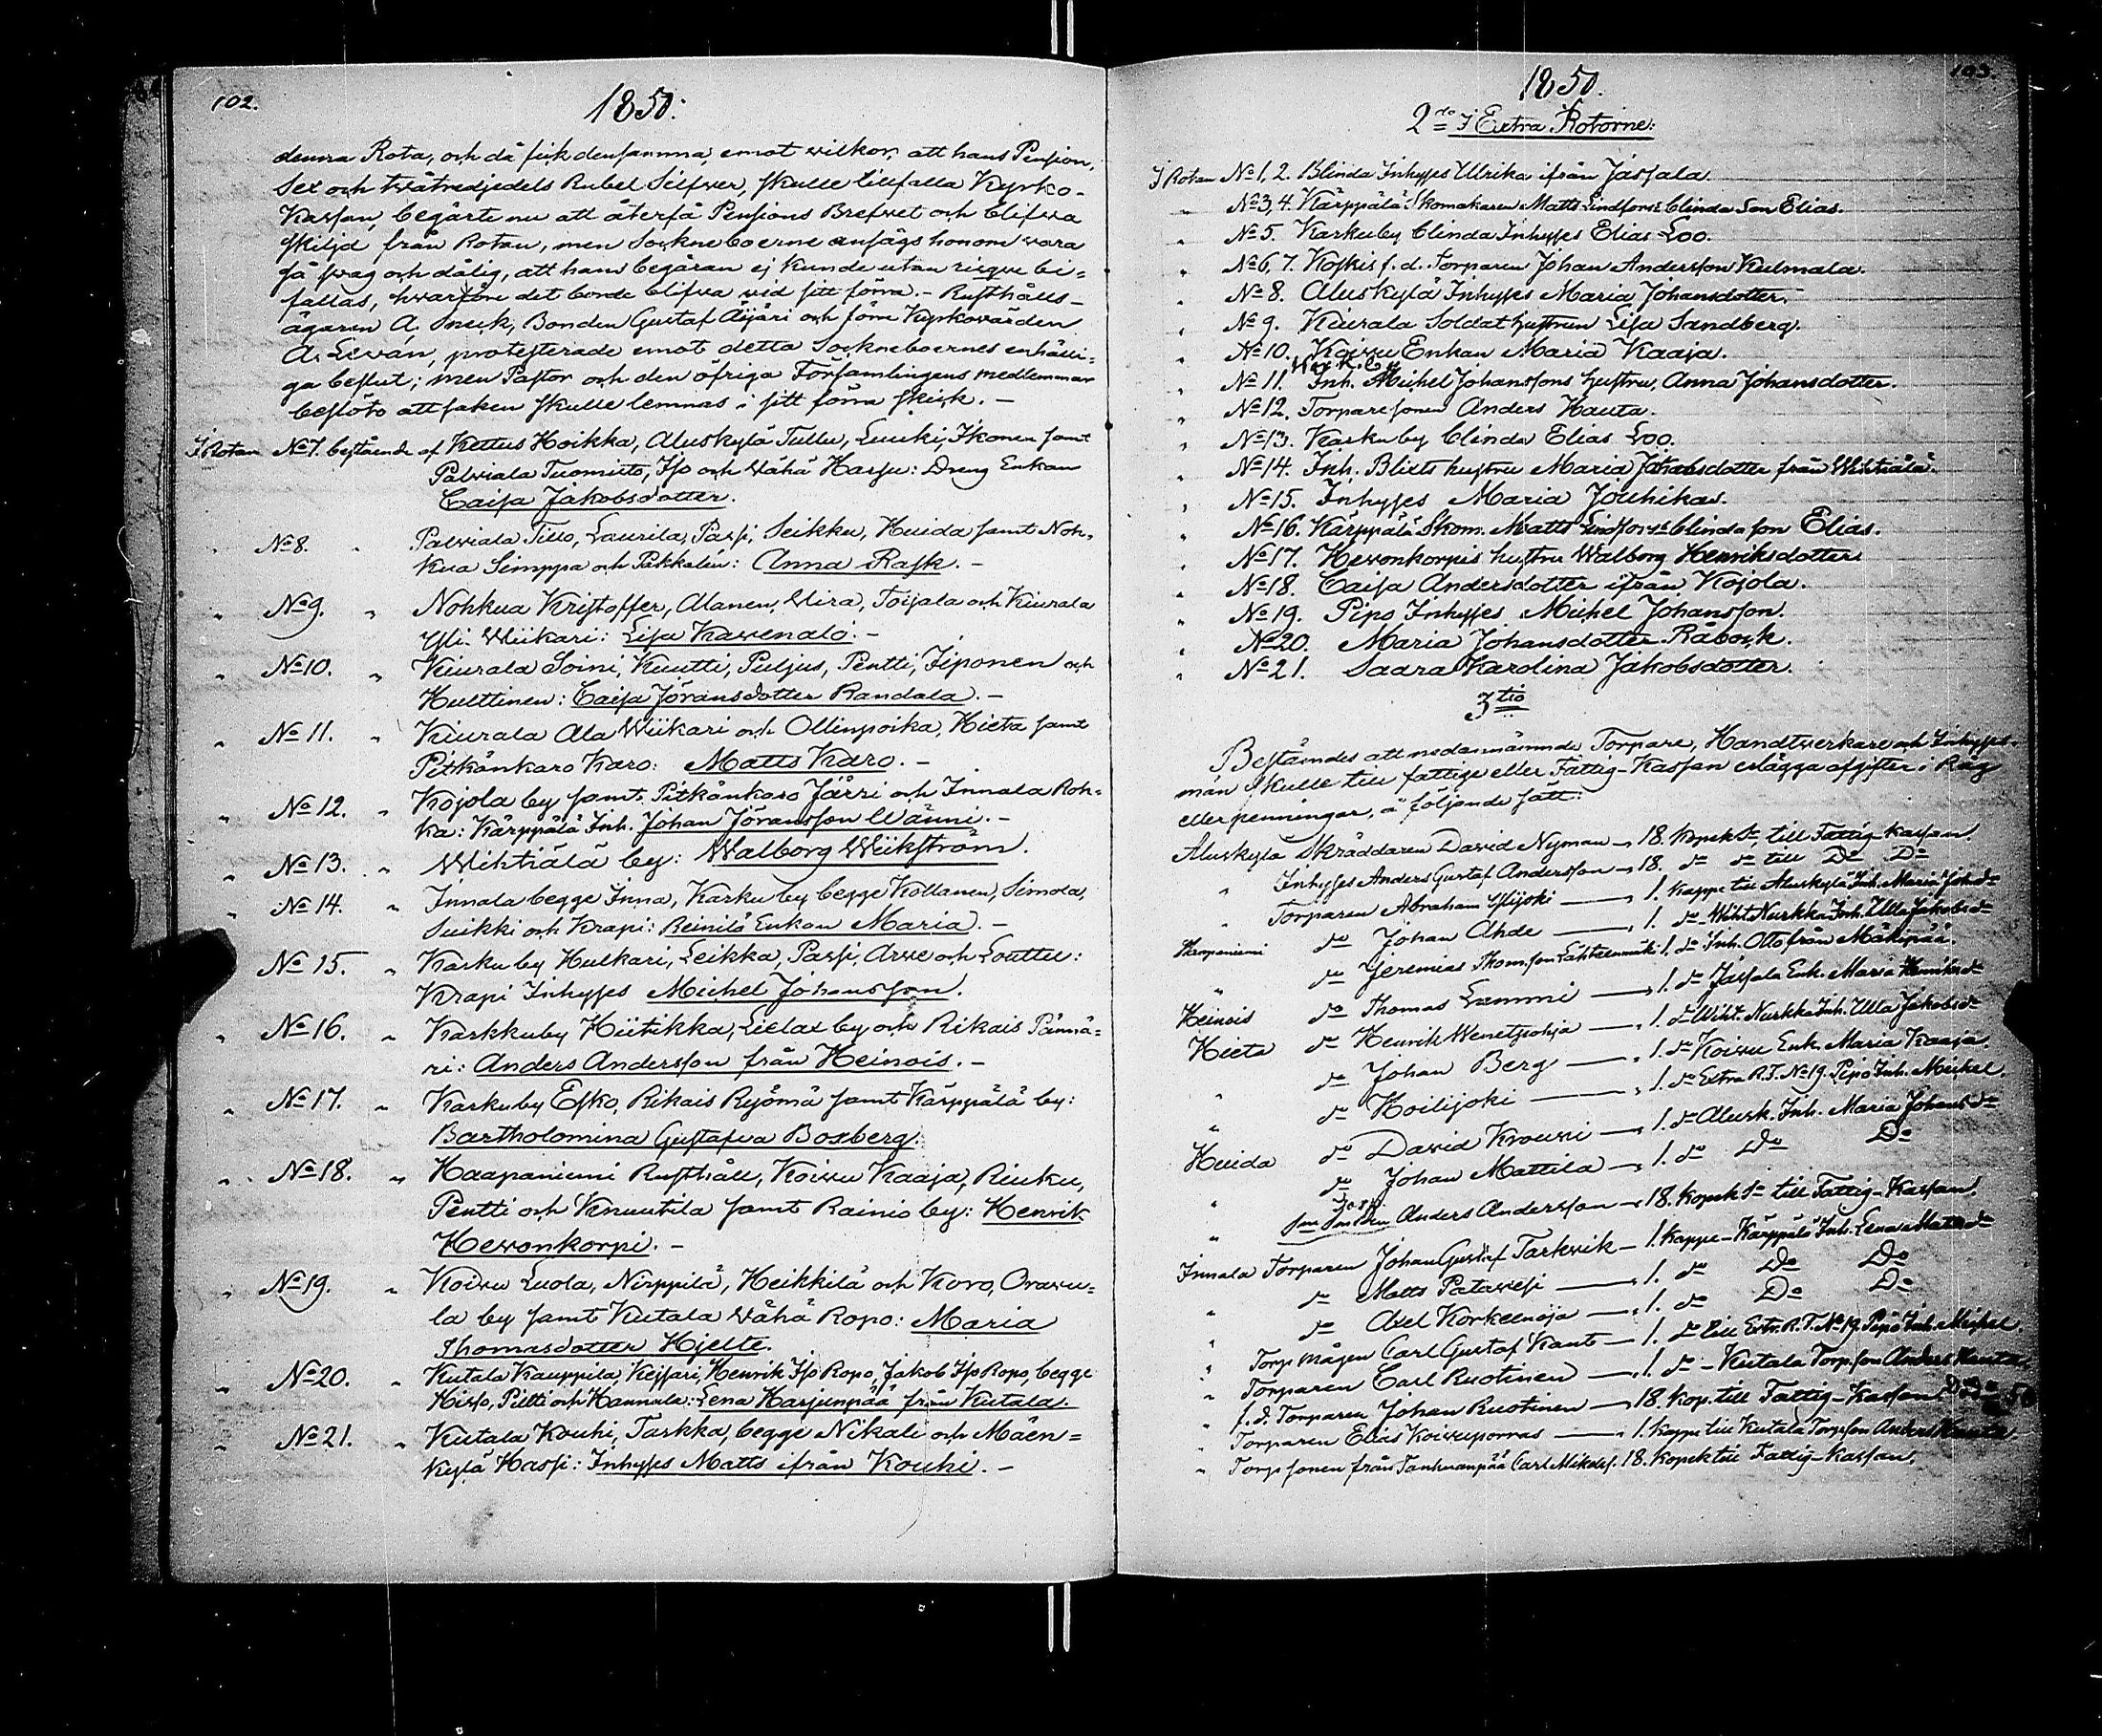 102.
1850.
denna Rota, och då fick densamma, emot wilkor, att hans Pension,
Sex och twåtredjedels Rubel Silfwer, skulle tillfalla Kyrko-
Kassan, begärte nu att återfå Pensions Brefwet och blifwa
skiljd från Rotan, men Sockneboerne ansågs honom wara
så swag och dålig, att hans begäran ej kunde utan risque bi=
fallas, hwarföre det borde blifwa wid sitt förra. - Rusthålls-
ägaren A. Sneck, Bonden Gustaf Äijäri och förre Kyrkovärden
A. Leván, protesterade emot detta Sockneboernes enhälli=
ga beslut; men Pastor och den öfriga Församlingens medlemmar
beslöto att saken skulle lemnas i sitt förra skick. -
I Rotan No 7. bestående af Kettus Hoikka, Aluskylä Tullu, Luuki, Ikonen samt
Palviala Tuomisto, Iso och Wähä Harju: Dreng Enkan
Caisa Jakobsdotter.
" No 8. " Palviala Tillo, Laurila, Passi, Seikku, Huida samt Noh=
kua Simppa och Pekkalin: Anna Rask. -
" No 9. " Nohkua Kristoffer, Alanen, Wira, Toijala och Kiurala
Yli Wiikari: Lisa Kawenalo. -
" No 10. " Kiurala Soini, Kuutti, Puljus, Pentti, Jiponen och
Hulttinen: Caisa Jöransdotter Randala. -
" No 11. " Kiurala Ala Wiikari och Ollinpoika, Hieta samt
Pitkänkaro Karo: Matts Karo. -
" No 12. " Kojola by samt Pitkänkaro Järri och Innala Roh=
ka: Kärppälä Inh. Johan Jöransson Wänni. -
" No 13. " Wihtiälä by: Walborg Wiikström.
" No 14. " Innala begge Inna, Karku by begge Kollanen, Simola,
Suikki och Krapi: Reinilä Enkan Maria. -
" No 15. " Karku by Hulkari, Leikka, Passi, Arwe och Louttu:
Krapi Inhyses Michel Johansson.
" No 16. " Karkkuby Hiitikka, Lielax by och Rikais Pännä=
ri: Anders Andersson från Heinois. -
" No 17. " Karkuby Esko, Rikais Ryömä samt Kärppälä by:
Bartholomina Gustafva Boxberg.
" No 18. " Haapaniemi Rusthåll, Koiwu Kaaja, Riuku,
Pentti och Knuutila samt Rainio by: Henrik
Hewonkorpi. -
" No 19. " Koiwu Luola, Nirppilä, Heikkilä och Koro, Orawu=
la by samt Kutala Wähä Ropo: Maria
Thomasdotter Hjelte.
" No 20. " Kutala Kauppila, Kessari, Henrik Iso Ropo, Jakob Iso Ropo, begge
Hirso, Piltti och Hannula: Lena Harjunpää från Kutala.
" No 21. " Kutala Kouhi, Tarkka, begge Nikali och Mäen=
kylä Hassi: Inhyses Matts ifrån Kouhi. -
103.
1850.
2do I Extra Rotorne:
I Rotan No 1, 2. Blinda Inhyses Ulrika ifrån Jassala.
" No 3, 4. Kärppälä Skomakaren Matts Lindfors's blinda Son Elias.
" No 5. Karkuby blinda Inhyses Elias Loo.
" No 6, 7. Koskis f. d. Torparen Johan Andersson Kulmala.
" No 8. Aluskylä Inhyses Maria Johansdotter.
" No 9. Kiurala Soldat hustrun Lisa Sandberg.
" No 10. Koiwu Enkan Maria Kaaja.
" No 11. Inh. Michel Johanssons hustru, Anna Johansdotter.
" No 12. Torparesonen Anders Hauta.
" No 13. Karkuby blinda Elias Loo.
" No 14. Inh. Blixts hustru Maria Jakobsdotter från Wihtiälä.
" No 15. Inhyses Maria Jouhikas.
" No 16. Kärppälä Skom. Matts Lindfors's blinda son Elias.
" No 17. Hewonkorpis hustru Walborg Henriksdotter.
" No 18. Caisa Andersdotter ifrån Kojola.
" No 19. Pipo Inhyses Michel Johansson.
" No 20. Maria Johansdotter Råbock.
" No 21. Saara Karolina Jakobsdotter.
3tio
Bestämdes att nedannämnde Torpare, Handtwerkare och Inhyses-
män skulle till fattige eller Fattig-Kassan erlägga afgifter i Råg
eller penningar, å följande sätt:
Aluskylä Skräddaren David Nyman - 18. Kopek Sr till Fattig-kassan.
" Inhyses Anders Gustaf Andersson - 18. do do till Do Do
" Torparen Abraham Ylijoki - 1. kappe till Aluskylä Inh. Maria Joh.dr
Haapaniemi do Johan Ahde - 1. do Wiht. Nurkka Inh. Ulla Jakobsdr
" do Jeremias Thomsson Lähteenmäki 1. do Inh. Otto från Mäkipää.
Heinois do Thomas Lammi - 1. do Jassala Enk. Maria Henriksdr
Hieta do Henrik Wenetpohja - 1. do Wiht. Nurkka Inh. Ulla Jakobsdr
" do Johan Berg - 1. do Koiwu Enk. Maria Kaaja.
" do Hoilijoki - 1. do Extra R. T. No 19. Pipo Inh. Michel.
Huida do David Krouwi - 1. do Alusk. Inh. Maria Johansdr
" do Johan Mattila - 1. do Do Do
" Anders Andersson - 18. kopek Sr till Fattig-Kassan.
Innala Torparen Johan Gustaf Tarkwik - 1. kappe - Kärppälä Inh. Lena Matsdr
" do Matts Patawesi - 1. do Do Do
" do Axel Korkeenoja - 1. do Do Do
" Torp mågen Carl Gustaf Kant - 1. do till Extr. R. T. No 19. Pipo Inh. Michel.
" Torparen Carl Ruotinen - 1. do - Kutala Torp. son Anders Hauta.
" f. d. Torparen Johan Ruotinen - 18. Kop. till Fattig-Kassan
" Torparen Elias Koiwuporras - 1. kappe till Kutala Torpson Anders Hauta.
" Torpsonen från Tanhuanpää Carl Mikelss. 18. kopek till Fattig-Kassan.